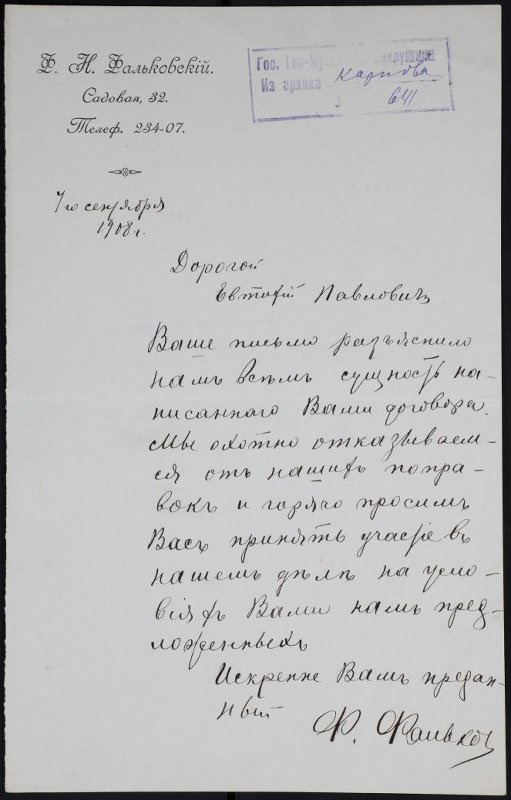 Ф. Н. Фальковскій.
Садовая, 32.
Телеф. 234-07.
Гос. Из архива Карпова
641
7го сентября
1908 г.
Дорогой
Евтихій Павловичъ
Ваше письмо разъяснило
намъ всѣмъ сущность на-
писаннаго Вами договора.
Мы охотно отказываем-
ся отъ нашихъ попра-
вокъ и горячо просимъ
Васъ принять участіе въ
нашемъ дѣлѣ на усло-
віяхъ Вами намъ пред-
ложенныхъ
Искренне Вамъ предан-
ный
Ф. Фальков